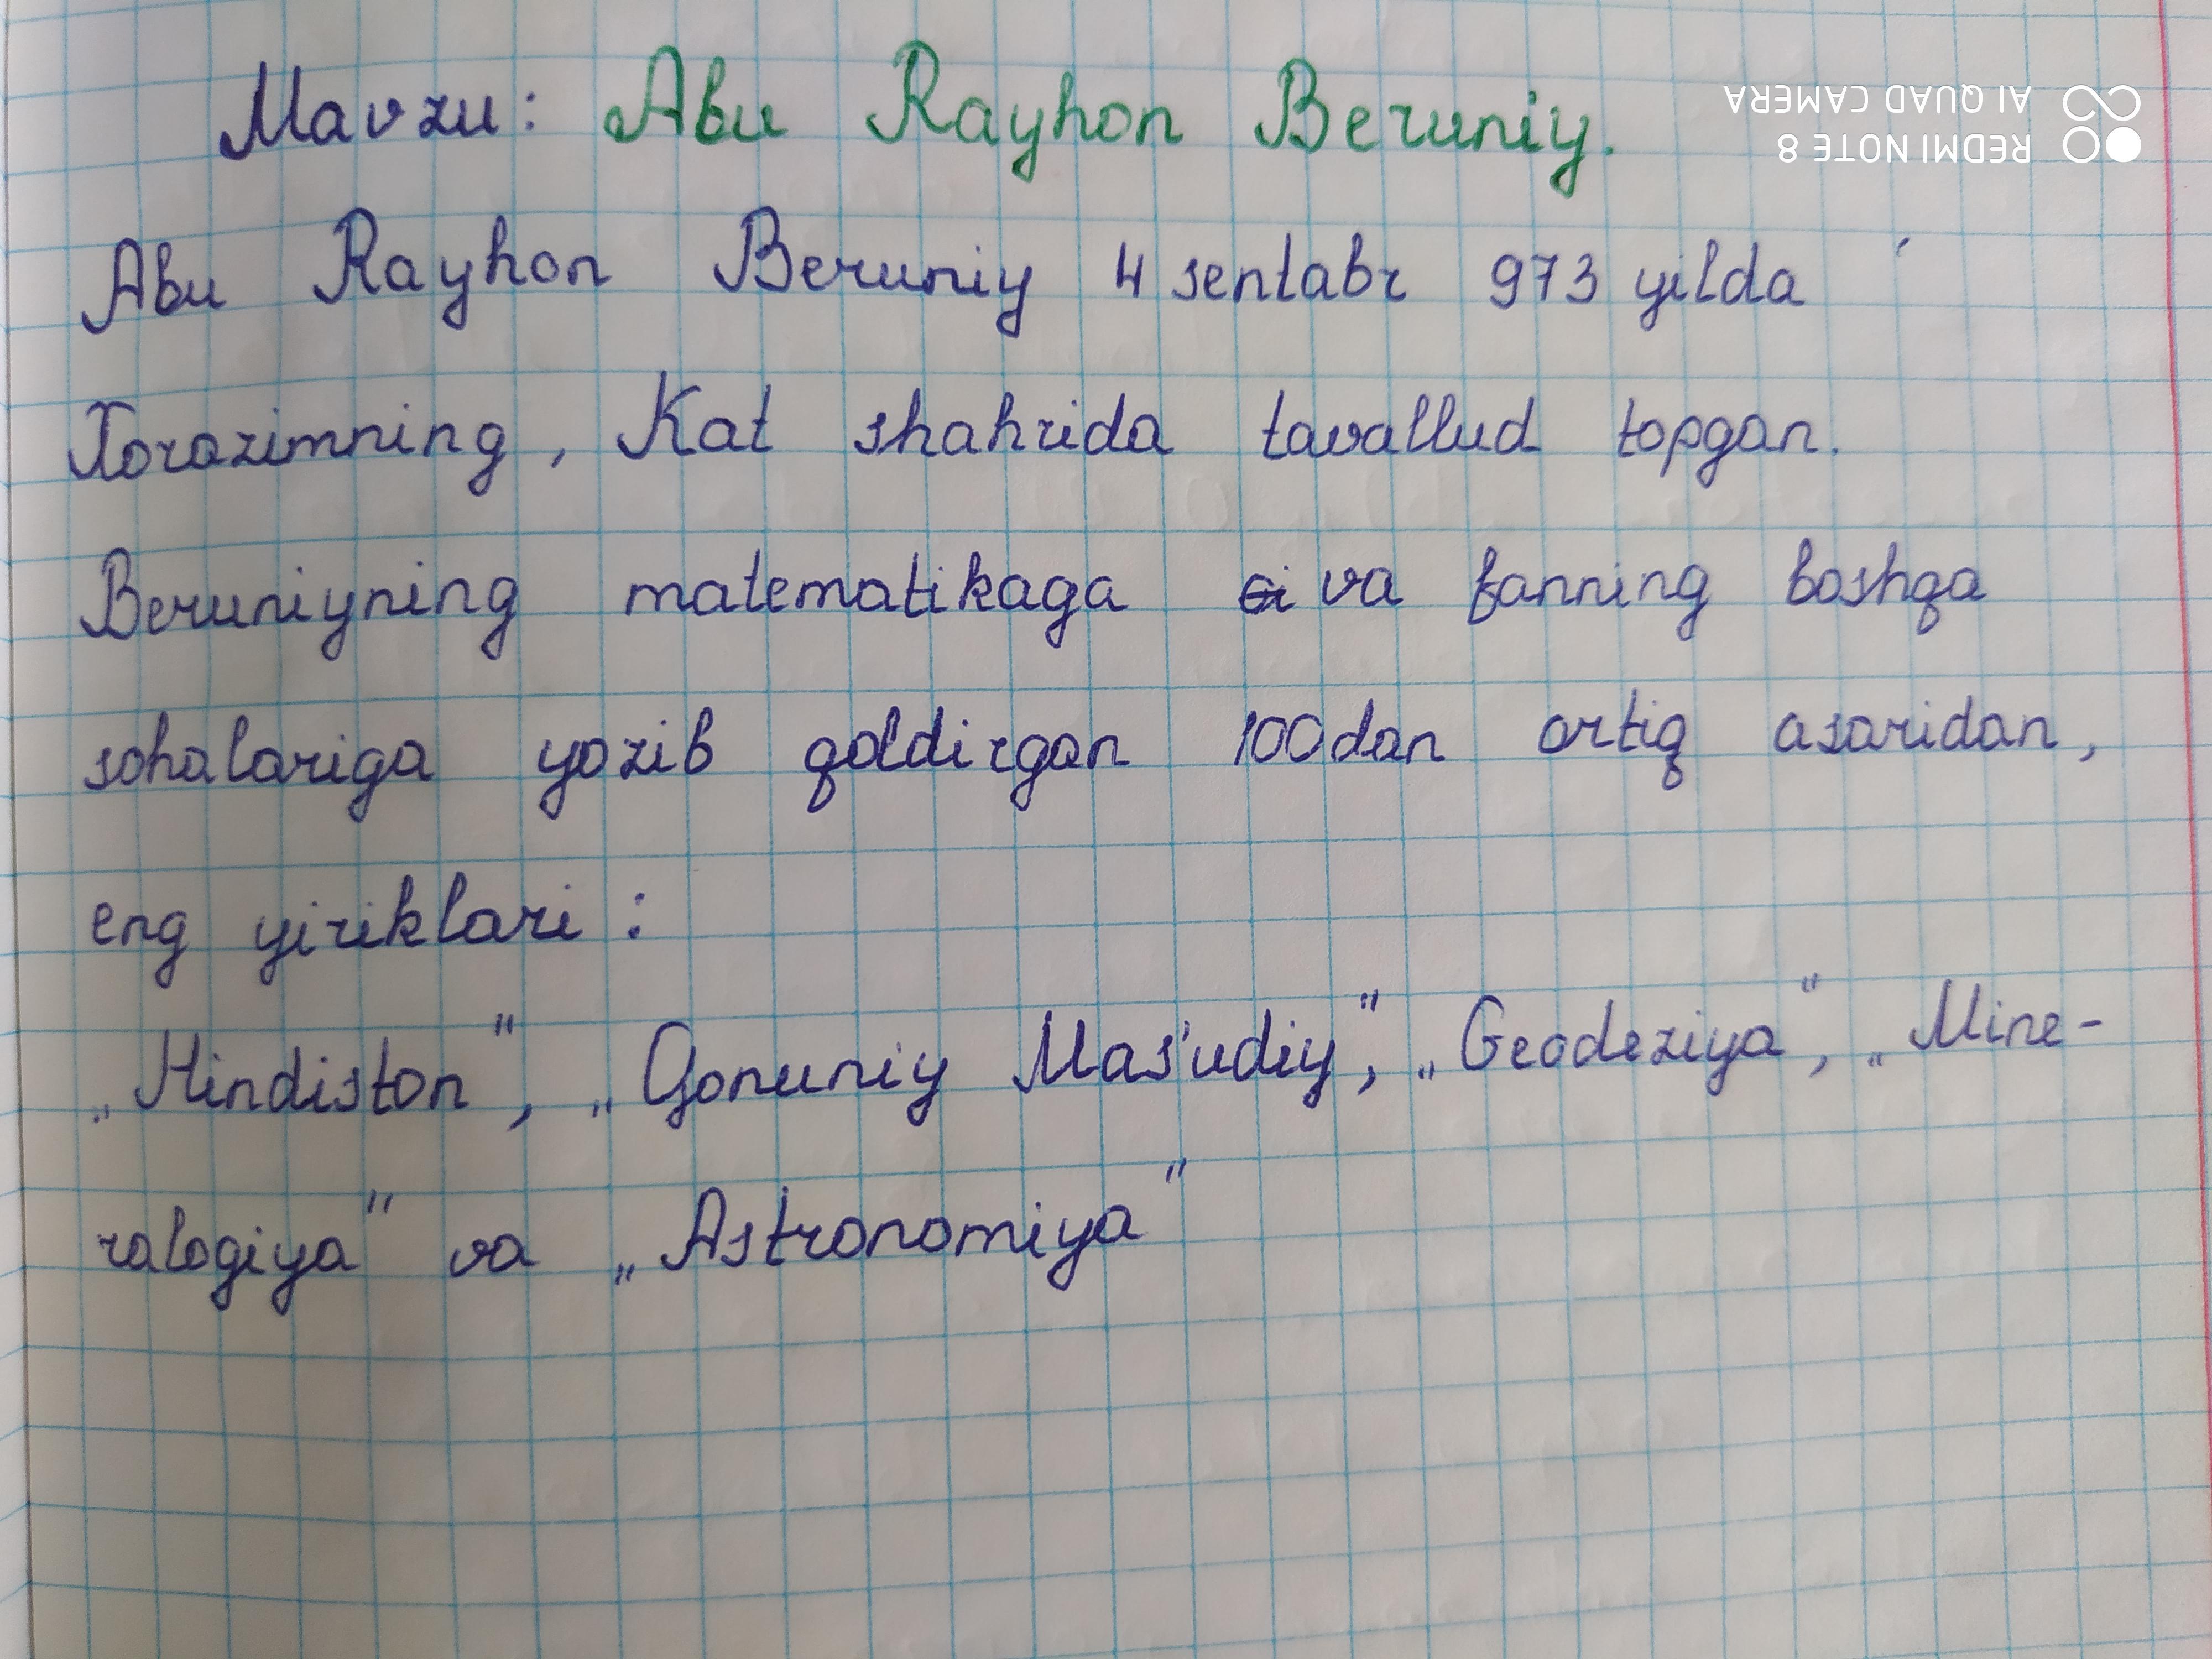 Mavzu: Abu Rayhon Beruniy.
Abu Rayhon Beruniy 4 sentabr 973 yilda
Xorazimning, Kat shahrida tavallud topgan.
Beruniyning matematikaga va fanning boshqa
sohalariga yozib qoldirgan 100dan ortiq asaridan,
eng yiriklari:
„Hindiston", „Qonuniy Mas'udiy", „Geodeziya", „Mine-
ralogiya" va „Astronomiya"
REDMI NOTE 8
AI QUAD CAMERA